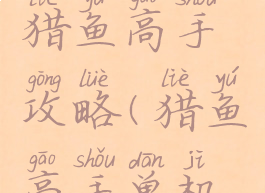 liè yú gāo shǒu
猎鱼高手
gōng lüè liè yú
攻略(猎鱼
gāo shǒu dān jī
高手单机